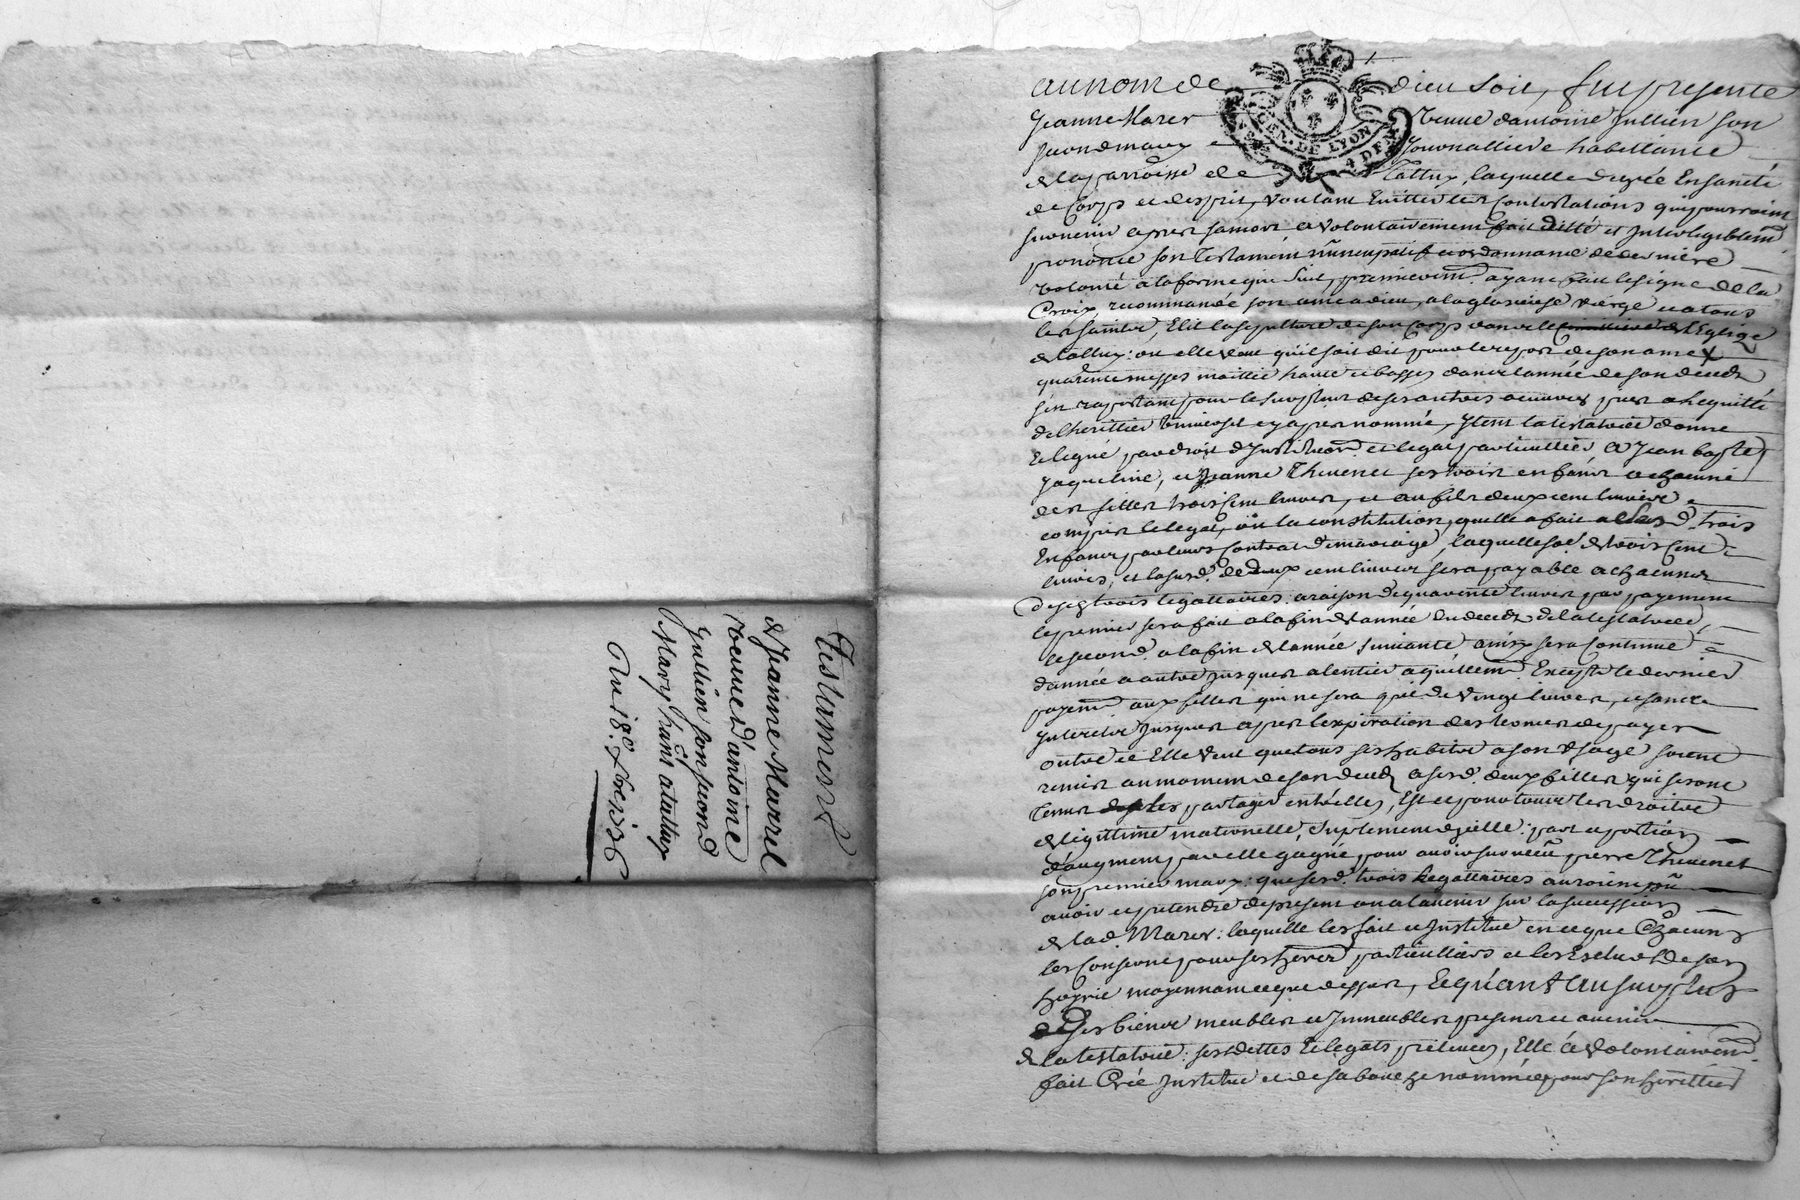 Testament
de Jeanne Marrel
veuve d'antoine
Jullien son second
Mary hant a tallux
Du 18e xbre 1736
GEN. DE LYON
4 DEN
au nom de dieu soit, fut presente
Jeanne Marer veuve dantoine Jullien son
second mary Journalliere habittante
de la parroisse de tallux, laquelle de gree En santé
de Corps et desprit, voulant Eviter les Contestations qui pourroient
survenir apres sa mort a volontairement fait ditté et Inteligiblemt
prononcé son testament nuncupatif et ordonnance de derniere
volonté a la forme que suit, premieremt ayant fait le signe de la
Croix, recommandé son ame a dieu, a la glorieuse vierge et a tous
les saints, Elit la sepulture de son Corps dans le cimitiere de lEglise
de tallux: ou elle veut quil soit dit pour le repos de son ame
quarente messes moitié haute et basses dans lannée de son deceds
sen raportant pour le surplus de ses autres oeuvres pies a lequitté
de lherittier universel cy apres nommé, Item la testatrice donne
et legue par droit dInstitution et legat particullier a Jean baptte
Jaqueline, et Jeanne Thevenet ses trois enfans a chacune
des filles trois cent livres, et au fils deux cent livres
compris le legat, ou la constitution, quelle a fait a sesd. trois
Enfans par leurs Contrat de mariage, laquelle so. de trois cent
livres, et lasusd. de deux cent livres sera payable a chacuns
de ses trois legattaires: a raison de quarente livres par payement
le premier sera fait a la fin de lannée du deceds de la testatrice,
le second a la fin de lannée suivante ainsy sera Continué
dannée a autre Jusques a lentier aquittemt Excepté le dernier
payemt aux filles qui ne sera que de vingt livres, et sans
Interets Jusques apres lexpiration des termes de payer
outre ce Elle veut que tous ses habits a son usage soient
remis au moment de son deceds a sesd. deux filles qui seront
tenues de les partager entrelles, Est ce pour tous les droits
de legittime maternelle, suplement dicelle: part et portion
daugment par elle gagné pour avoir survecu pierre Thevenet
son premier mary: que sesd. trois legattaires auroient pû
avoir et pretendre de present ou a lavenir sur la succession
de lad. Marer: laquelle les fait et Institue en ce que Chacuns
les Conserne pour ses heriers particulliers et les Exclud de son
hoyrie moyennant ce que dessus, Et quant au surplus
de ses biens meubles et Immeubles presents et avenir
de la testatrice: ses dettes et legats prelevés, Elle a volontairemt
fait Créé Institue et de sa bouche nommée pour son herittier